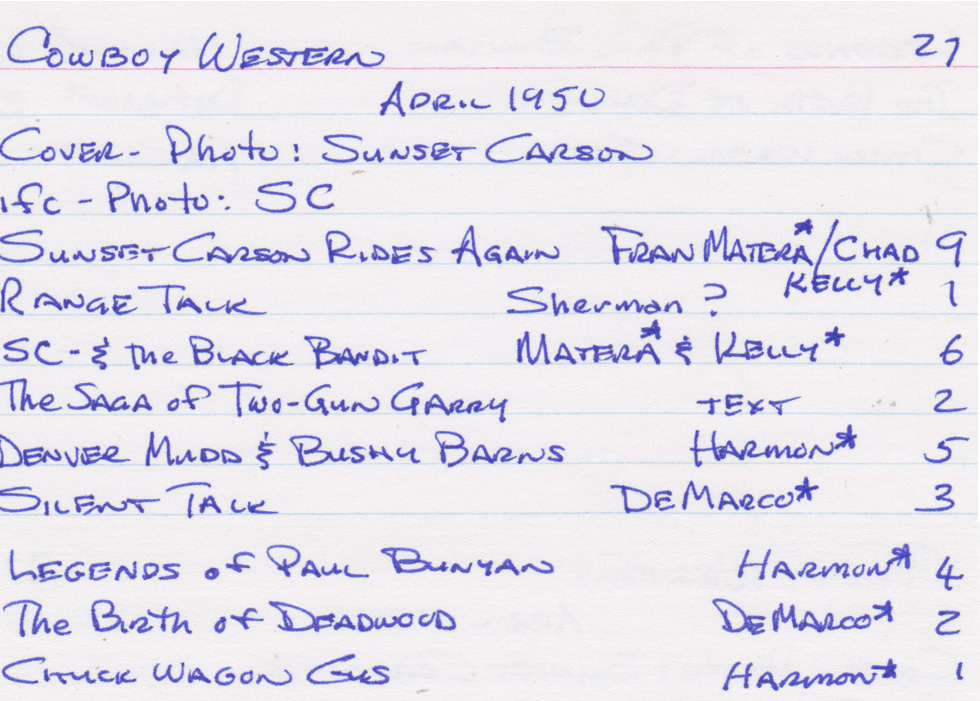 Cowboy Western 27
April 1950
Cover - Photo: Sunset Carson
ifc - Photo: SC
Sunset Carson Rides Again Fran Matera*/Chad Kelly* 9
Range Talk Sherman ? 1
SC - & the Black Bandit Matera* & Kelly* 6
The Saga of Two-Gun Garry TEXT 2
Denver Mudd & Bushy Barns Harmon* 5
Silent Talk DeMarco* 3
Legends of Paul Bunyan Harmon* 4
The Birth of Deadwood DeMarco* 2
Chuck Wagon Gus Harmon* 1